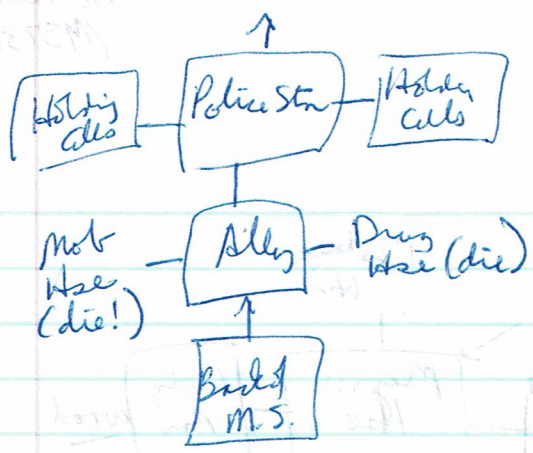 Holding
Cells
Police Stn
Holding
Cells
Mob
Hse
(die!)
Alley
Drug
Hse (die)
Back of
M.S.